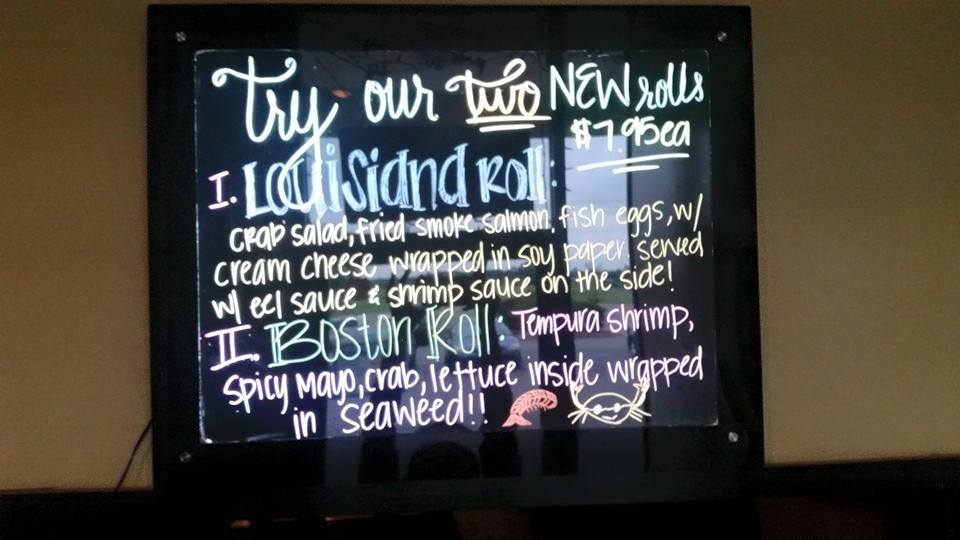 Try our two NEW rolls
$7.95ea
I. Louisiand Roll:
crab salad, fried smoke salmon, fish eggs, w/
cream cheese wrapped in soy paper. served
w/ eel sauce & shrimp sauce on the side!
II. Boston Roll: Tempura shrimp,
spicy mayo, crab, lettuce inside wrapped
in seaweed!!